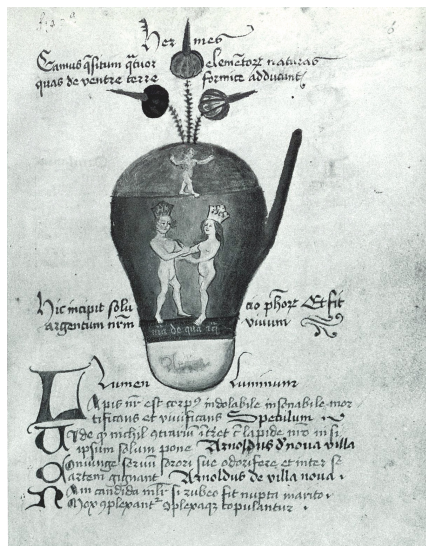 Hermes
Eamus q̃situm q̃tuor elemẽtorꝝ naturas
quas de ventre terre formice adducunt
Hic incipit solucio ph̃orꝝ Et fit
argentum nr̃m vivum
mã de qua
Lumen luminum
Lapis nr̃ est corpꝰ indolabile insonabile mor
tificans et vivificans Speculum
q̃ nichil lapide nr̃o in si
ipsum solum pone Arnoldus d̃ nova villa
Coniunge servũ sorori sue odorifere et inter se
artem gignant Arnoldus de villa nova
Nam candida mlr̃ si rubeo fit nupta marito
Mox ꝯplexantr̃ ꝯplexaqꝫ copulantur